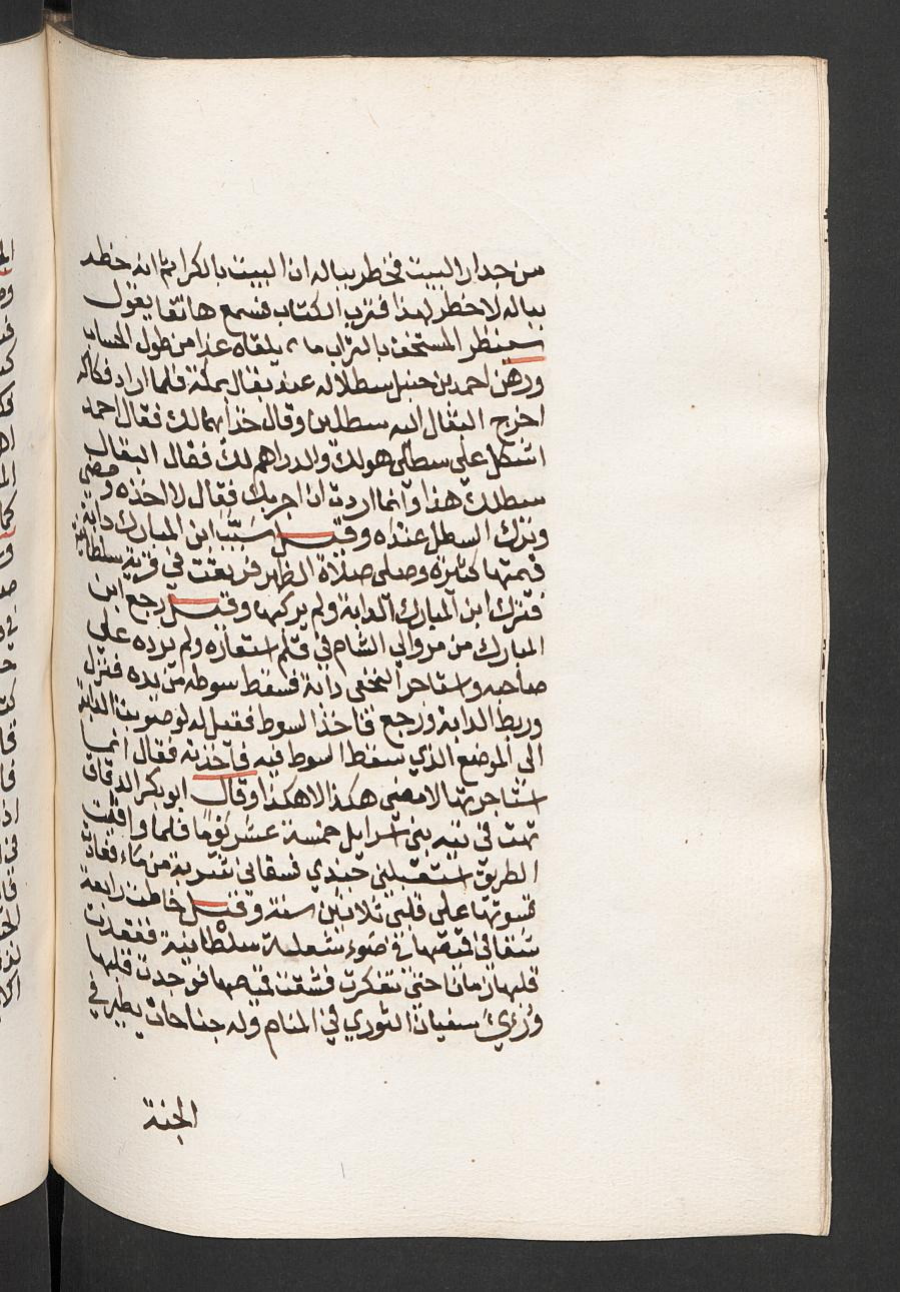 من جدار البيت فخطر بباله ان البيت بالكرا ثم انه خطر
بباله لا خطر لهذا فترب الكتاب فسمع هاتفا يقول
سينظر المستخف بالتراب ما يلقاه غدا من طول الحساب
ورهن احمد بن حنبل سطلا له عند بقال بمكة فلما اراد فكاكه
اخرج البقال اليه سطلين وقال خذ ايهما لك فقال احمد
اشكل علي سطلي هو لك والدراهم لك فقال البقال
سطلك هذا وانما اردت ان اجربك فقال لا اخذه ومضى
وترك السطل عنده وقيل سيب ابن المبارك دابة
قيمتها كثيرة وصلى صلاة الظهر فرتعت في قرية سلطانية
فترك ابن المبارك الدابة ولم يركبها وقيل رجع ابن
المبارك من مرو الى الشام في قلم استعاره ولم يرده على
صاحبه واستاجر النخعي دابة فسقط سوطه من يده فنزل
وربط الدابة ورجع فاخذ السوط فقيل له لو صوبت الدابة
الى الموضع الذي سقط السوط فيه فاخذته فقال انما
استاجرتها لامضي هكذا لا هكذا وقال ابو بكر الدقاق
تهت في تيه بني اسرايل خمسة عشر يوما فلما وافيت
الطريق استقبلني جندي فسقاني شربة من ماء فعادت
قسوتها على قلبي ثلاثين سنة وقيل خاطت رابعة
شقا في قميصها في ضوء شعلة سلطانية ففقدت
قلبها زمانا حتى تفكرت فشقت قميصها فوجدت قلبها
ورئي سفيان الثوري في المنام وله جناحان يطير في
الجنة